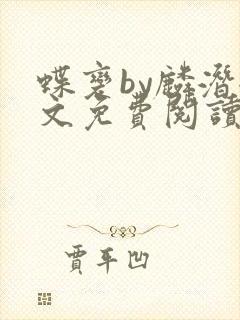 蝶褒by麟潛
文免費閱讀
賈平凹